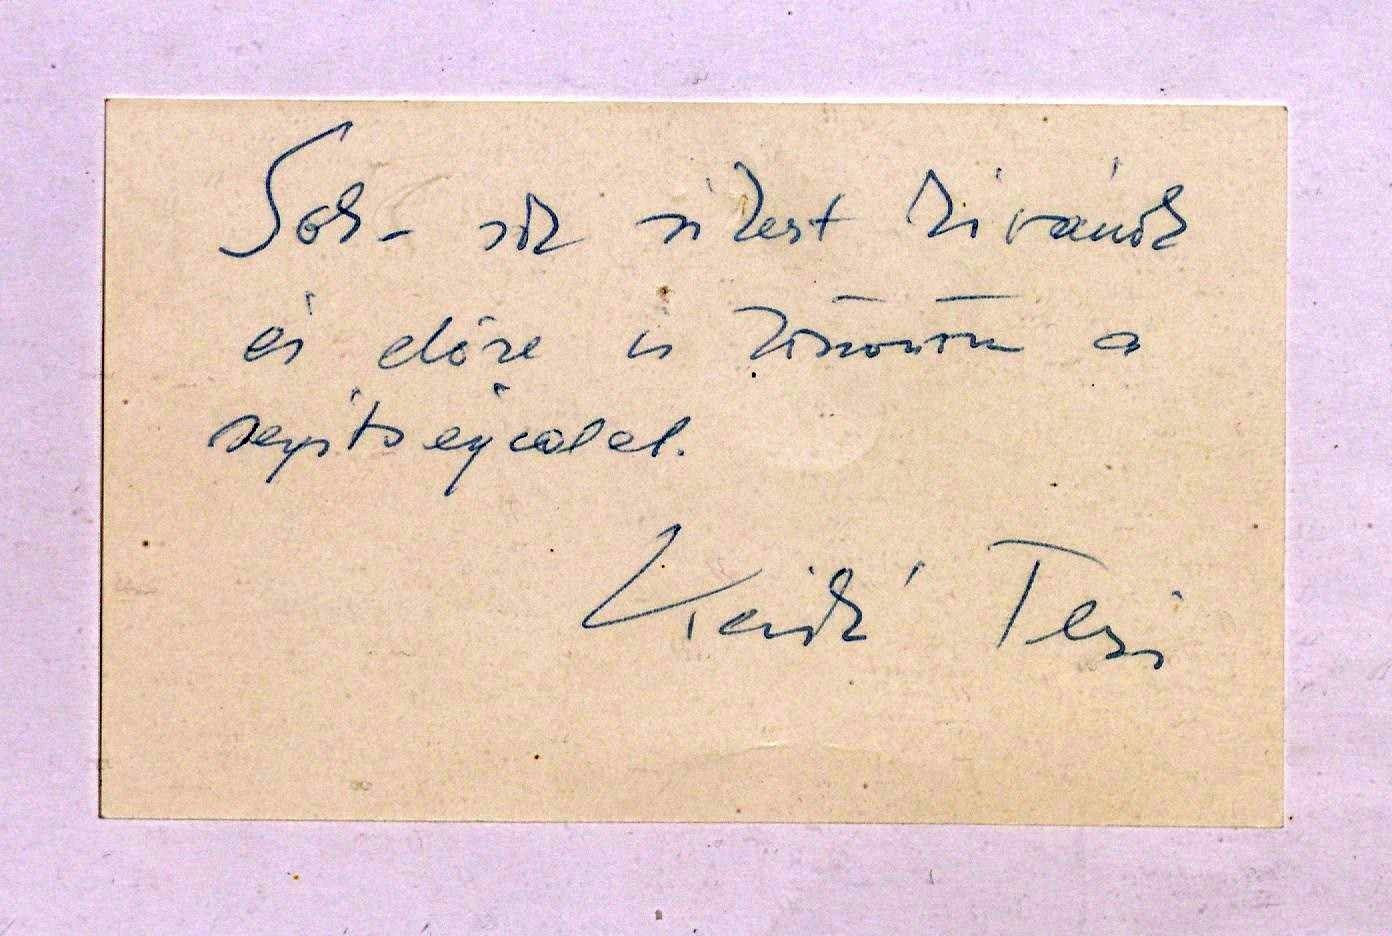 Sok - sok sikert kívánok
és előre is köszönöm a
segítségedet.
Teri